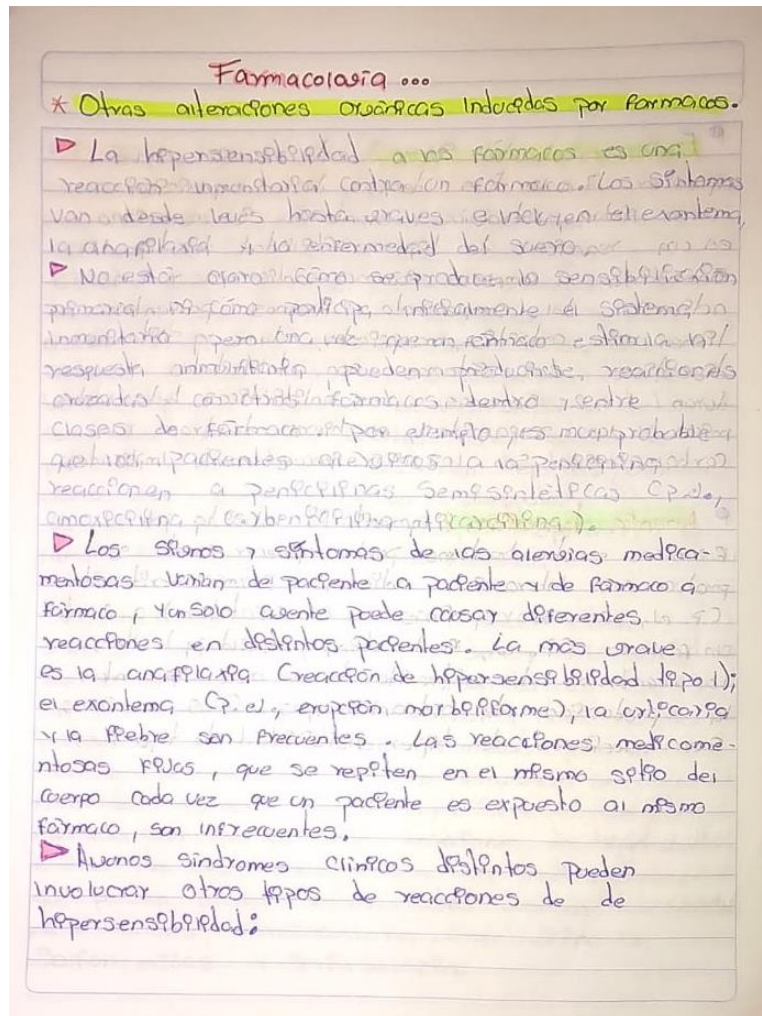 Farmacología ...
* Otras alteraciones orgánicas Inducidas por farmacos.
La hipersensibilidad a los fármacos es una
reacción inmunitaria contra un fármaco. Los Síntomas
van desde leves hasta graves e incluyen el exantema,
la anafilaxia y la enfermedad del suero
No está claro cómo se produce la sensibilización
primaria ni cómo participa inicialmente el sistema
inmunitario pero una vez que un estimula
respuesta inmunitaria pueden producirse, reacciones
cruzadas con otros fármacos dentro y entre
clases de fármacos. por ejemplo, es muy probable
que los pacientes alérgicos a la penicilina
reaccionen a penicilinas semisintéticas (p.ej.,
amoxicilina, carbenicilina, ticarcilina).
Los signos y síntomas de las alergias medica-
mentosas varían de paciente a paciente y de fármaco a
fármaco, y un solo agente puede causar diferentes
reacciones en distintos pacientes. La más grave
es la anafilaxia (reacción de hipersensibilidad tipo 1);
el exantema (p. ej., erupción morbiliforme), la urticaria
y la fiebre son frecuentes. Las reacciones medicame-
ntosas fijas, que se repiten en el mismo sitio del
cuerpo cada vez que un paciente es expuesto al mismo
fármaco, son infrecuentes.
Algunos síndromes clínicos distintos pueden
involucrar otros tipos de reacciones de de
hipersensibilidad: